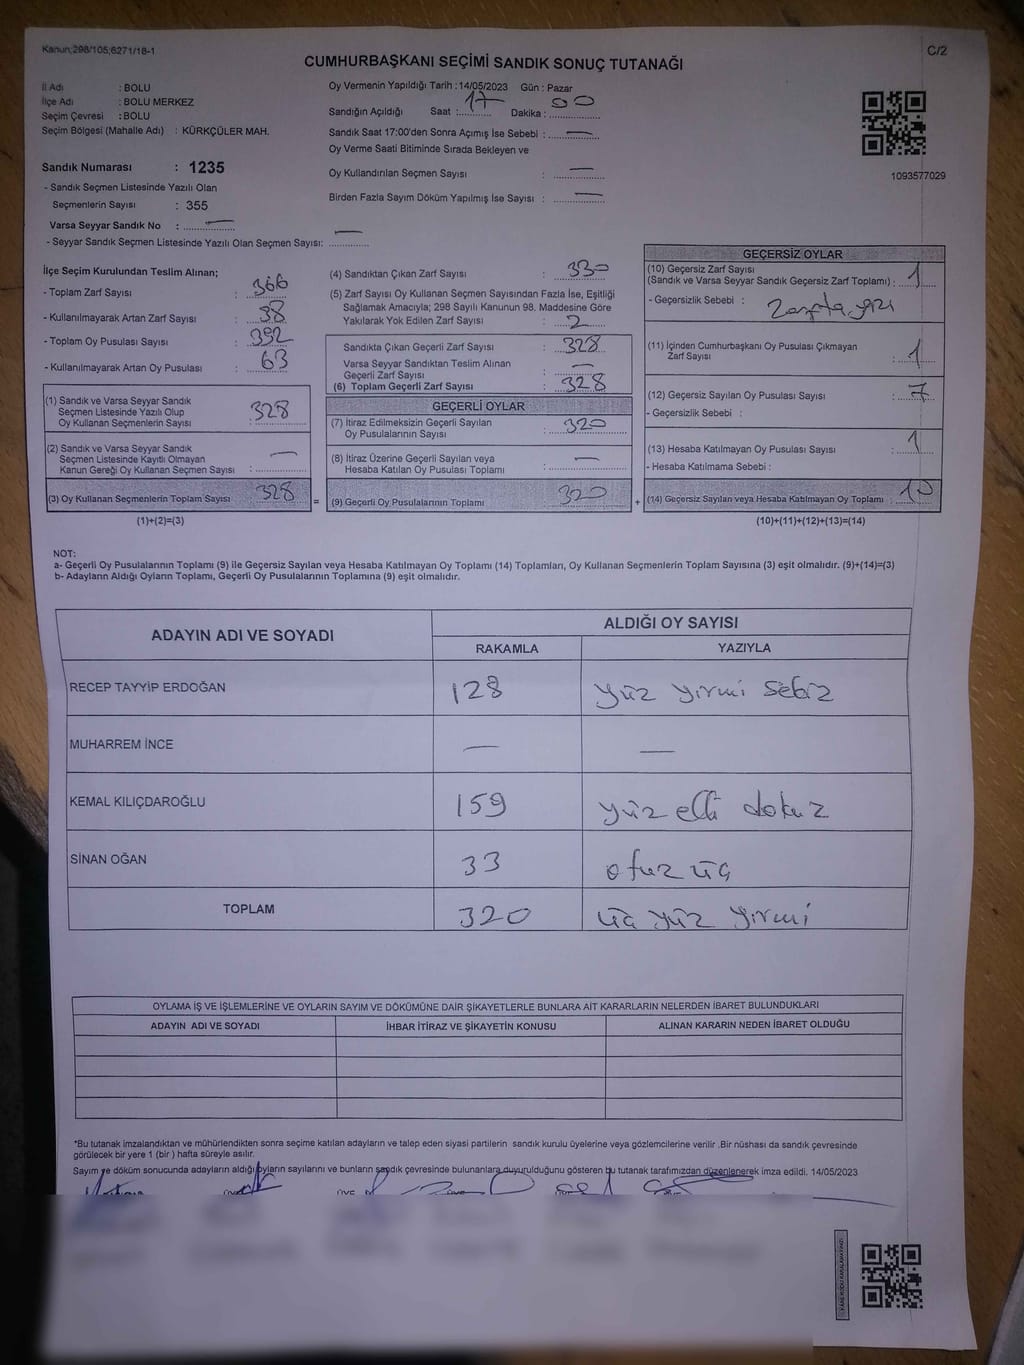 Kanun;298/105;6271/18-1
C/2
CUMHURBAŞKANI SEÇİMİ SANDIK SONUÇ TUTANAĞI
İl Adı : BOLU
İlçe Adı : BOLU MERKEZ
Seçim Çevresi : BOLU
Seçim Bölgesi (Mahalle Adı) : KÜRKÇÜLER MAH.
Sandık Numarası : 1235
- Sandık Seçmen Listesinde Yazılı Olan
Seçmenlerin Sayısı : 355
Varsa Seyyar Sandık No : —
- Seyyar Sandık Seçmen Listesinde Yazılı Olan Seçmen Sayısı: —
Oy Vermenin Yapıldığı Tarih : 14/05/2023 Gün : Pazar
Sandığın Açıldığı Saat : 17 Dakika : 00
Sandık Saat 17:00'den Sonra Açımış İse Sebebi : —
Oy Verme Saati Bitiminde Sırada Bekleyen ve
Oy Kullandırılan Seçmen Sayısı : —
Birden Fazla Sayım Döküm Yapılmış İse Sayısı : —
1093577029
İlçe Seçim Kurulundan Teslim Alınan;
- Toplam Zarf Sayısı : 366
- Kullanılmayarak Artan Zarf Sayısı : 38
- Toplam Oy Pusulası Sayısı : 392
- Kullanılmayarak Artan Oy Pusulası : 63
(1) Sandık ve Varsa Seyyar Sandık
Seçmen Listesinde Yazılı Olup
Oy Kullanan Seçmenlerin Sayısı : 328
(2) Sandık ve Varsa Seyyar Sandık
Seçmen Listesinde Kayıtlı Olmayan
Kanun Gereği Oy Kullanan Seçmen Sayısı : —
(3) Oy Kullanan Seçmenlerin Toplam Sayısı : 328
(1)+(2)=(3)
(4) Sandıktan Çıkan Zarf Sayısı : 330
(5) Zarf Sayısı Oy Kullanan Seçmen Sayısından Fazla İse, Eşitliği
Sağlamak Amacıyla; 298 Sayılı Kanunun 98. Maddesine Göre
Yakılarak Yok Edilen Zarf Sayısı : 2
Sandıkta Çıkan Geçerli Zarf Sayısı : 328
Varsa Seyyar Sandıktan Teslim Alınan
Geçerli Zarf Sayısı : —
(6) Toplam Geçerli Zarf Sayısı : 328
GEÇERLİ OYLAR
(7) İtiraz Edilmeksizin Geçerli Sayılan
Oy Pusulalarının Sayısı : 320
(8) İtiraz Üzerine Geçerli Sayılan veya
Hesaba Katılan Oy Pusulası Toplamı : —
= (9) Geçerli Oy Pusulalarının Toplamı : 320 +
GEÇERSİZ OYLAR
(10) Geçersiz Zarf Sayısı
(Sandık ve Varsa Seyyar Sandık Geçersiz Zarf Toplamı) : 1
- Geçersizlik Sebebi : Zarfta yazı
(11) İçinden Cumhurbaşkanı Oy Pusulası Çıkmayan
Zarf Sayısı : 1
(12) Geçersiz Sayılan Oy Pusulası Sayısı : 7
- Geçersizlik Sebebi :
(13) Hesaba Katılmayan Oy Pusulası Sayısı : 1
- Hesaba Katılmama Sebebi :
(14) Geçersiz Sayılan veya Hesaba Katılmayan Oy Toplamı : 10
(10)+(11)+(12)+(13)=(14)
NOT:
a- Geçerli Oy Pusulalarının Toplamı (9) ile Geçersiz Sayılan veya Hesaba Katılmayan Oy Toplamı (14) Toplamları, Oy Kullanan Seçmenlerin Toplam Sayısına (3) eşit olmalıdır. (9)+(14)=(3)
b- Adayların Aldığı Oyların Toplamı, Geçerli Oy Pusulalarının Toplamına (9) eşit olmalıdır.
ADAYIN ADI VE SOYADI
ALDIĞI OY SAYISI
RAKAMLA YAZIYLA
RECEP TAYYİP ERDOĞAN 128 yüz yirmi sekiz
MUHARREM İNCE — —
KEMAL KILIÇDAROĞLU 159 yüz elli dokuz
SİNAN OĞAN 33 otuz üç
TOPLAM 320 üç yüz yirmi
OYLAMA İŞ VE İŞLEMLERİNE VE OYLARIN SAYIM VE DÖKÜMÜNE DAİR ŞİKAYETLERLE BUNLARA AİT KARARLARIN NELERDEN İBARET BULUNDUKLARI
ADAYIN ADI VE SOYADI İHBAR İTİRAZ VE ŞİKAYETİN KONUSU ALINAN KARARIN NEDEN İBARET OLDUĞU
*Bu tutanak imzalandıktan ve mühürlendikten sonra seçime katılan adayların ve talep eden siyasi partilerin sandık kurulu üyelerine veya gözlemcilerine verilir .Bir nüshası da sandık çevresinde
görülecek bir yere 1 (bir ) hafta süreyle asılır.
Sayım ve döküm sonucunda adayların aldığı oyların sayılarını ve bunların sandık çevresinde bulunanlara duyurulduğunu gösteren bu tutanak tarafımızdan düzenlenerek imza edildi. 14/05/2023